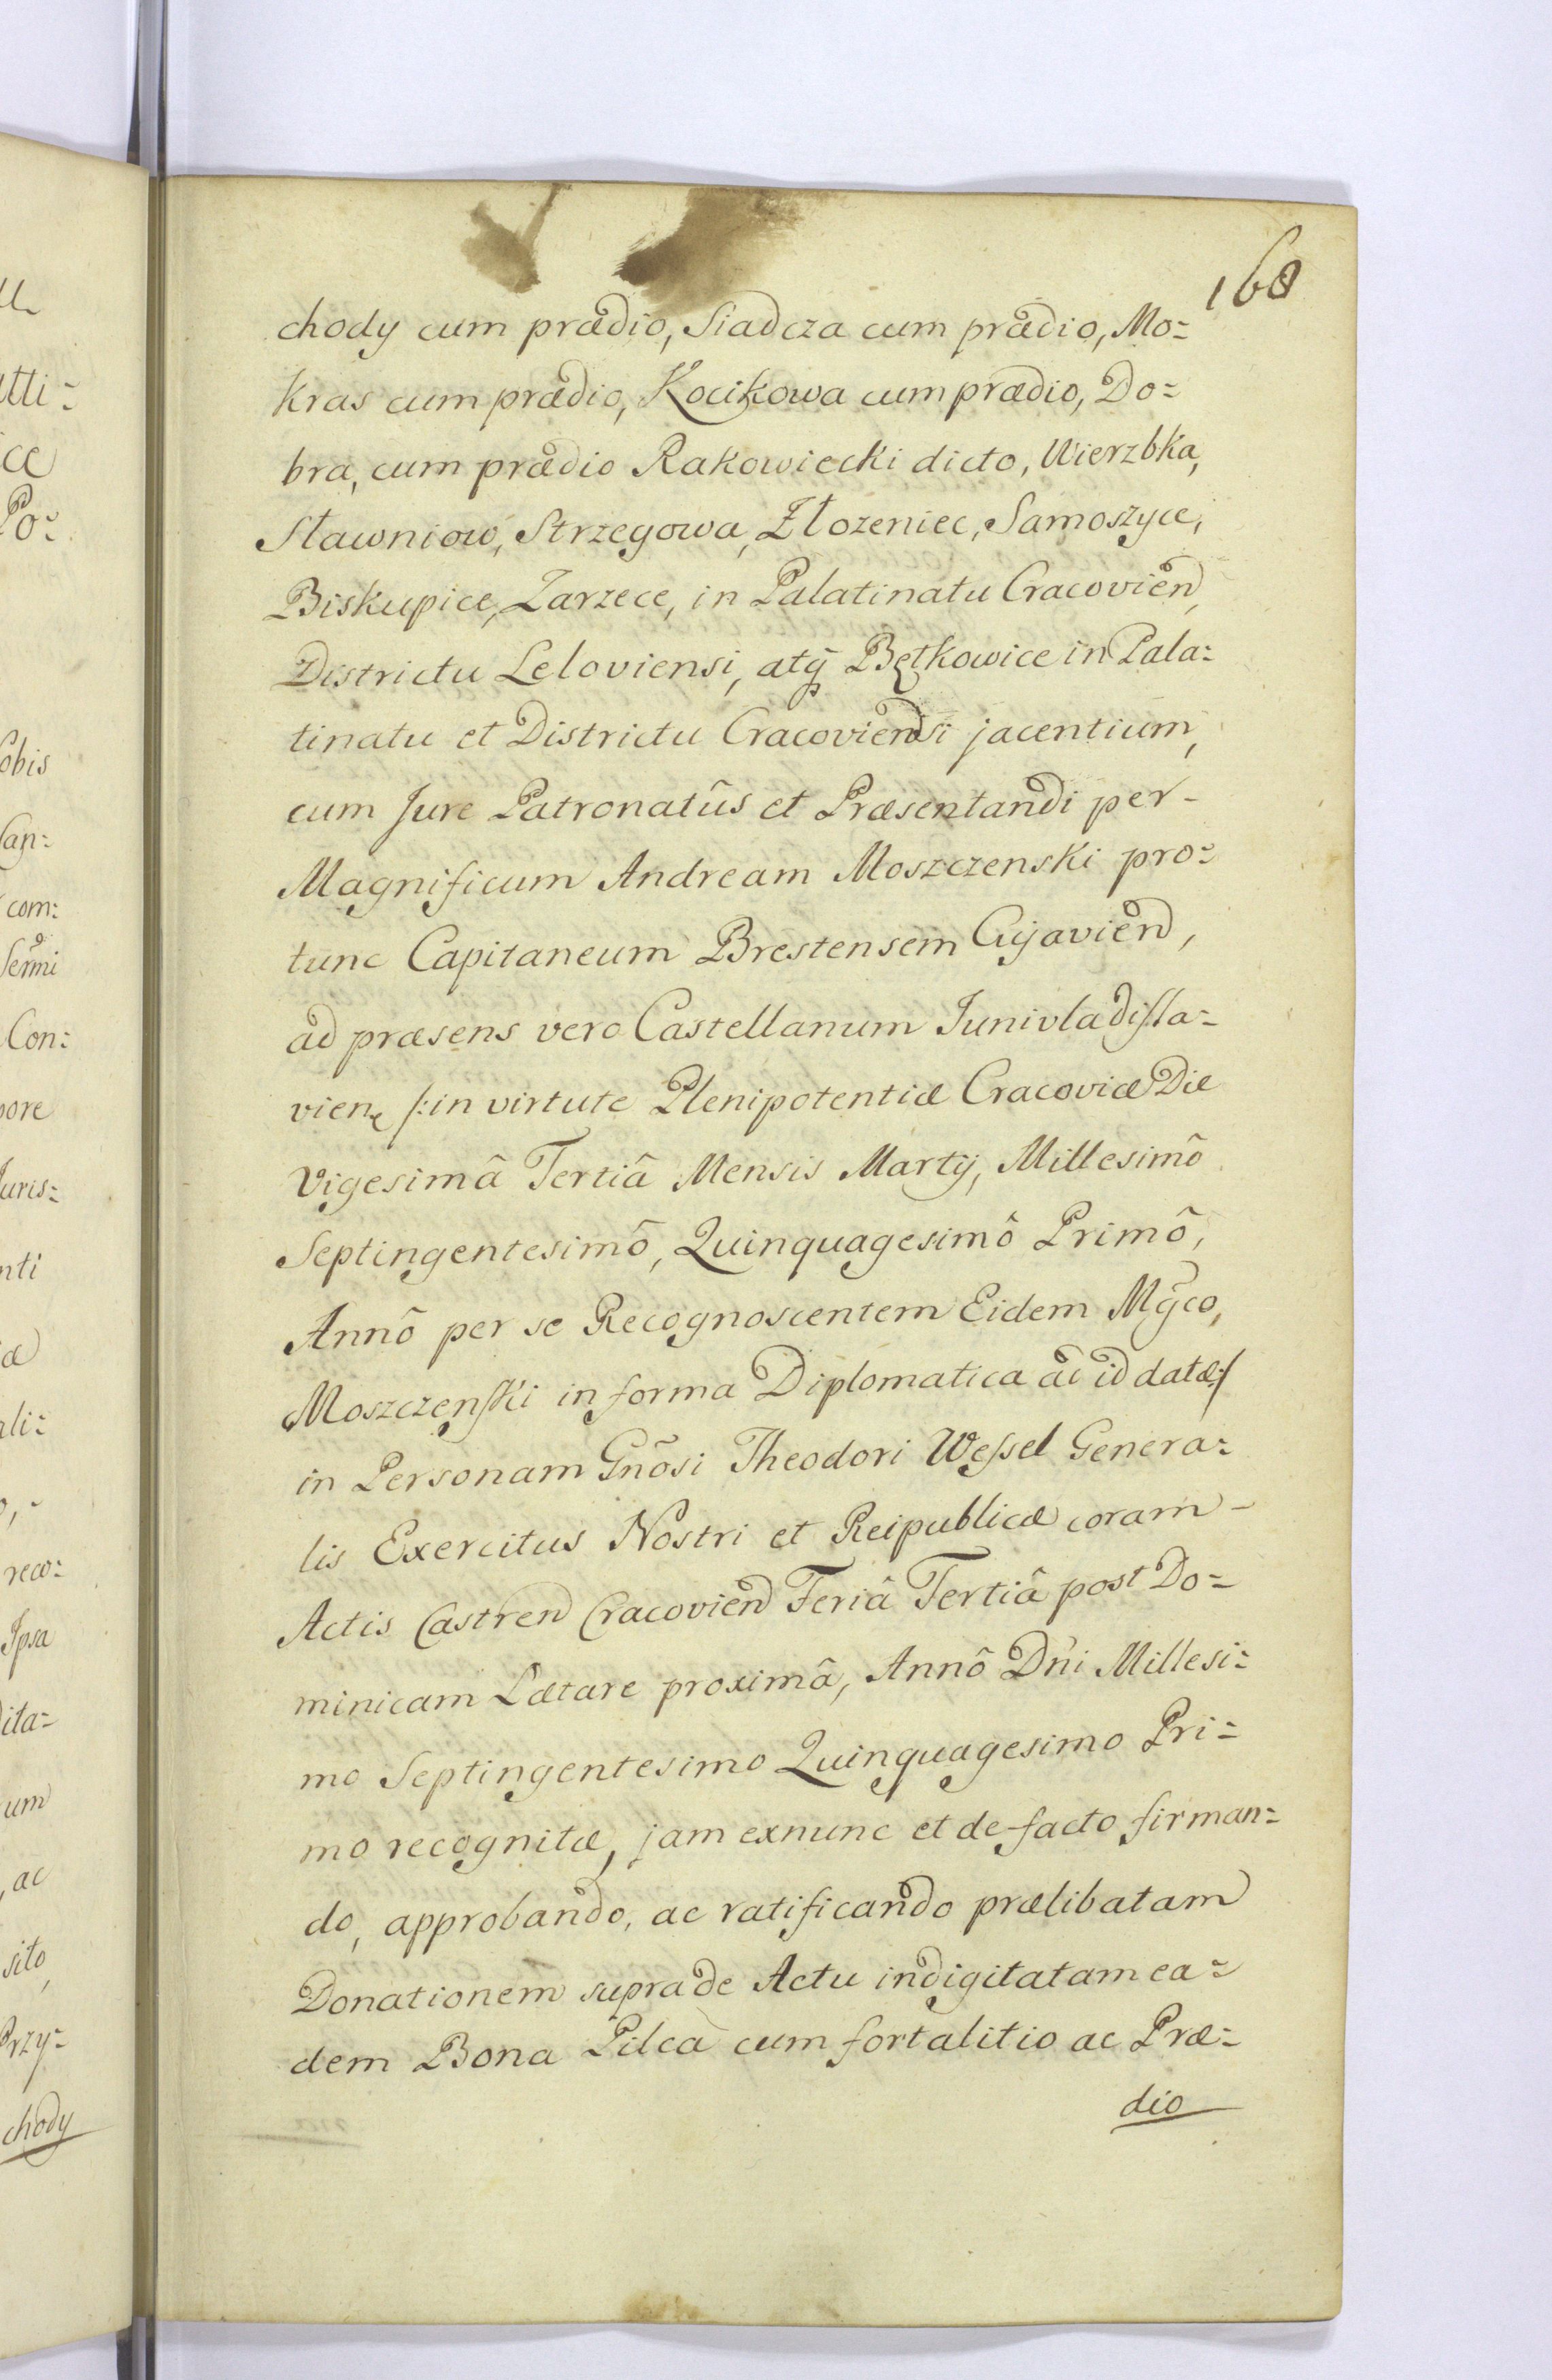 160
chody cum prædio, Siadcza cum prædio, Mo=
kras cum prædio, Kocikowa cum prædio, Do=
bra, cum prædio Rakowiecki dicto, Wierzbka,
Sławniow, Strzegowa, Złozeniec, Samoszyce,
Biskupice, Zarzece, in Palatinatu Cracovien̄,
Districtu Leloviensi, atq̃ Bętkowice in Pala=
tinatu et Districtu Cracoviensi jacentium,
cum Jure Patronatûs et Præsentandi per-
Magnificum Andream Moszczenski pro=
tunc Capitaneum Brestensem Cujavien̄,
ad præsens vero Castellanum Junivladisla=
vien, /:in virtute Plenipotentiæ Cracoviæ Die
Vigesimâ Tertiâ Mensis Martij, Millesimô
Septingentesimô, Quinquagesimô Primô,
Annô per se Recognoscentem Eidem Mg̃co,
Moszczenski in forma Diplomatica ac id datæ:/
in Personam Gnõsi Theodori Wessel Genera=
lis Exercitus Nostri et Reipublicæ coram-
Actis Castren̄ Cracovien̄ Feriâ Tertiâ post Do=
minicam Lætare proximâ, Annô Dn̄i Millesi=
mo Septingentesimo Quinquagesimo Pri=
mo recognitæ, jam exnunc et de facto firman=
do, approbando, ac ratificando prælibatam
Donationem supra de Actu indigitatam ea=
dem Bona Pilca cum fortalitio ac Præ=
dio
tti=
ce
Po=
obis
Cap=
com=
Sermi
Con=
pore
Juris=
nti
æ
ali=
reco=
Ipsa
dita=
um
, ac
sito,
Przy=
chody